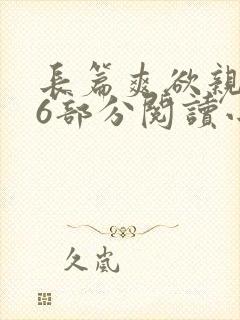 長篇爽欲親
6部分閱讀
久嵐